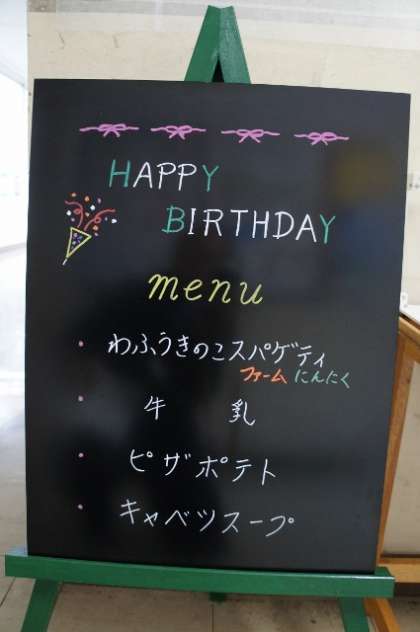 HAPPY
BIRTHDAY
menu
・わふうきのこスパゲティ
ファーム にんにく
・牛 乳
・ピザポテト
・キャベツスープ